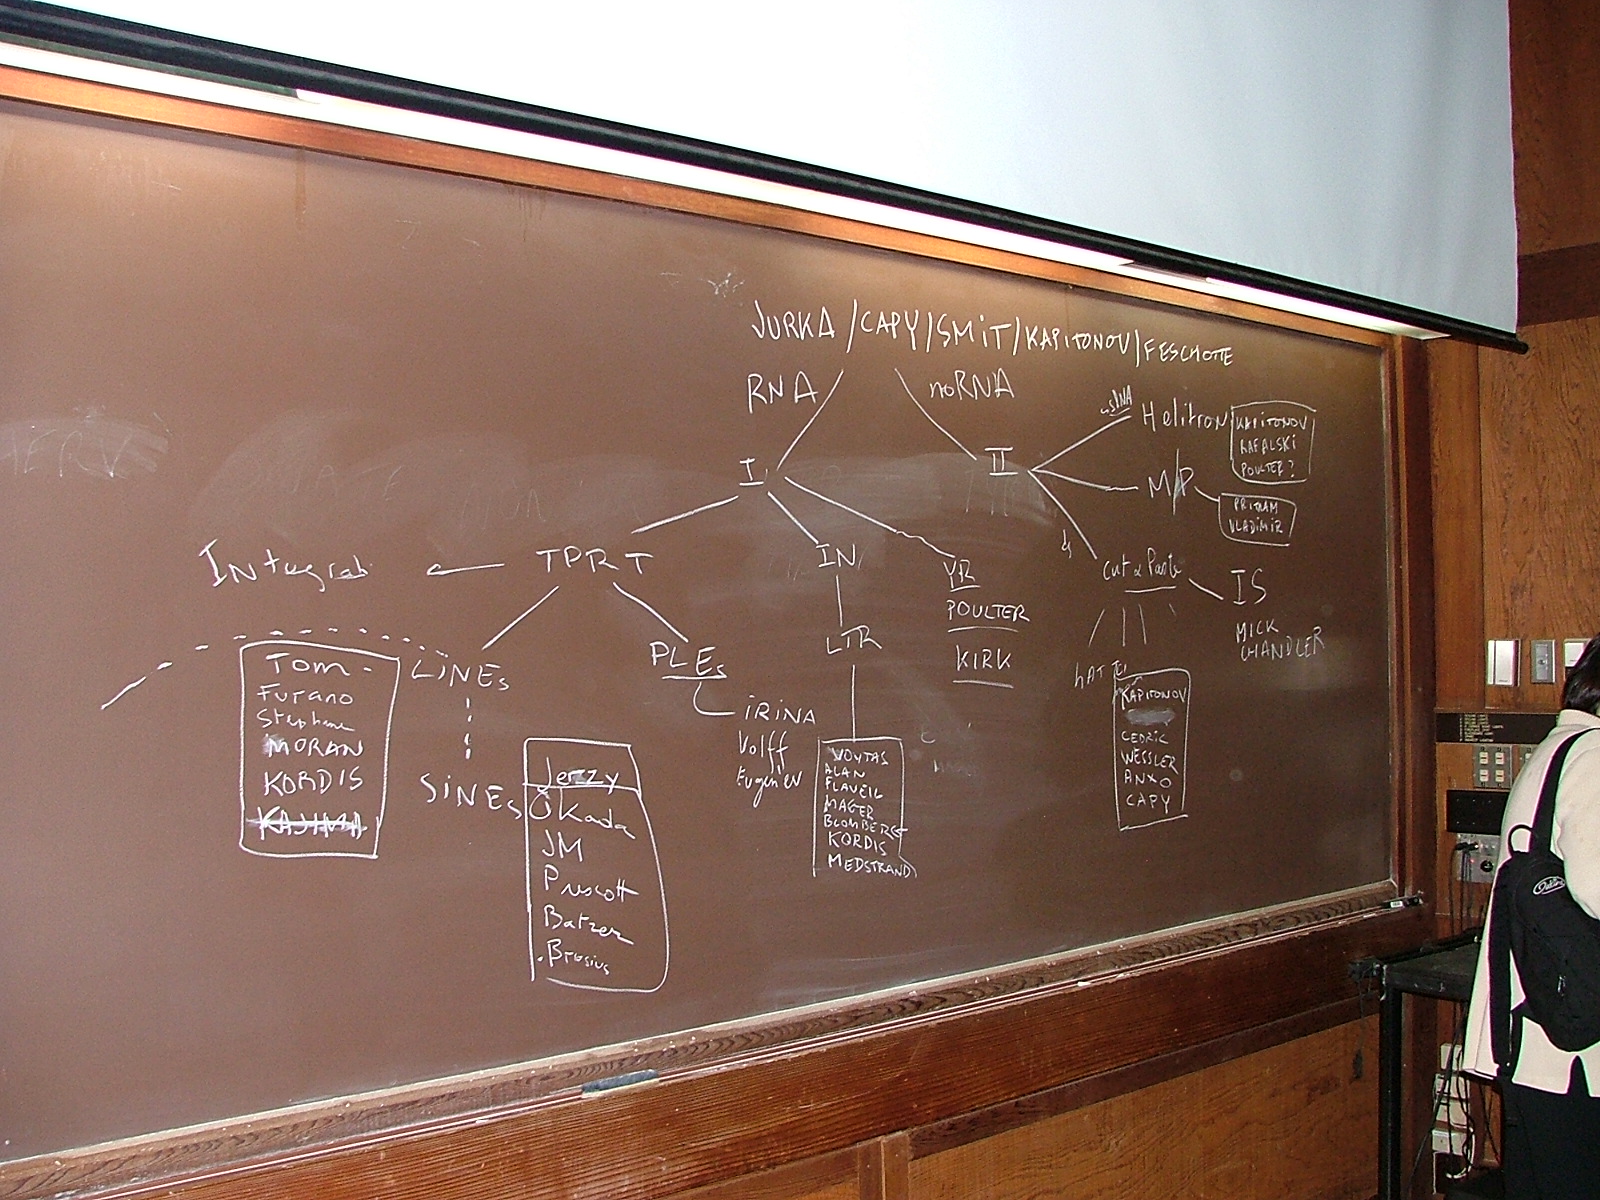 JURKA / CAPY / SMIT / KAPITONOV / FESCHOTTE
RNA
noRNA
I
II
Helitron
KAPITONOV
KAFALSKI
POULTER?
M/P
PRITHAM
VLADIMIR
Cut & Paste
IS
MICK
CHANDLER
hAT
KAPITONOV
CEDRIC
WESSLER
ANXO
CAPY
TPRT
IN
YR
POULTER
KIRK
LTR
VOYTAS
ALAN
FLAVELL
MAGER
BLOMBERG
KORDIS
MEDSTRAND
PLEs
IRINA
Volff
Eugen'ev
LINEs
Tom -
Furano
Stephane
MORAN
KORDIS
KAJIMA
SINEs
Jerzy
Okada
JM
Prescott
Batzer
Brosius